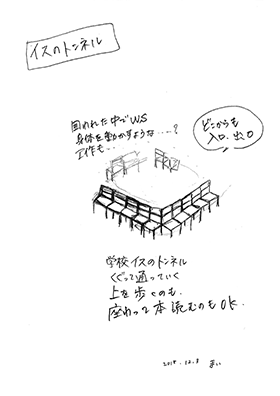 イスのトンネル
囲われた中でWS
身体を動かすような・・・・?
工作も・・・
どこからも
入口、出口
学校イスのトンネル
くぐって通っていく
上を歩くのも、
座わって本読むのもOK.
2018.12.8 まい